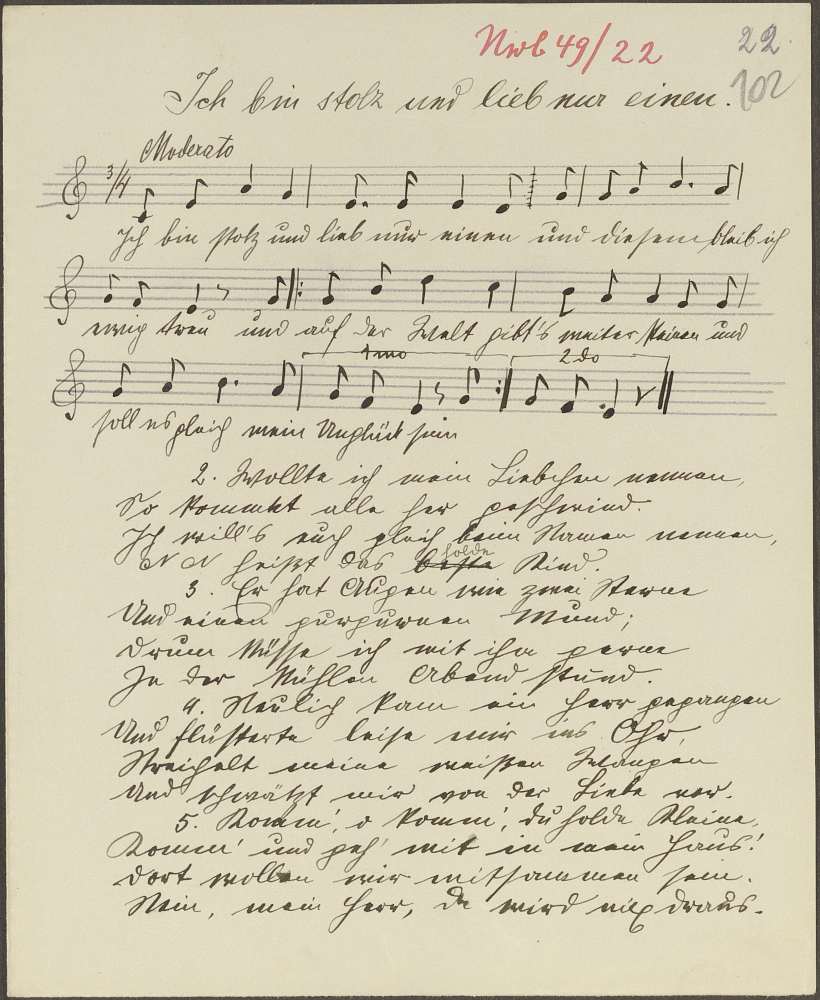 Nwb 49/22
22.
102
Ich bin stolz und lieb nur einen.
Moderato
3/4
Ich bin stolz und lieb nur einen und diesem bleib ich
ewig treu und auf der Welt gibt's weiter keinen und
1mo 2do
soll es gleich mein Unglück sein
2. Wollte ich mein Liebchen nennen,
So kommt alle her geschwind.
Ich will's euch gleich beim Namen nennen,
N N heißt das beste holde Kind.
3. Er hat Augen wie zwei Sterne
Und einen purpurnen Mund;
Drum küsse ich mit ihm gerne
In der kühlen Abend stund.
4. Neulich kam ein Herr gegangen
Und flüsterte leise mir ins Ohr,
Streichelt meine weißen Wangen
Und schwätzt mir von der Liebe vor.
5. Komm', o komm', du holde Kleine,
Komm' und geh' mit in mein Haus!
Dort wollen wir mitsammen sein.
Nein, mein Herr, da wird nix draus.